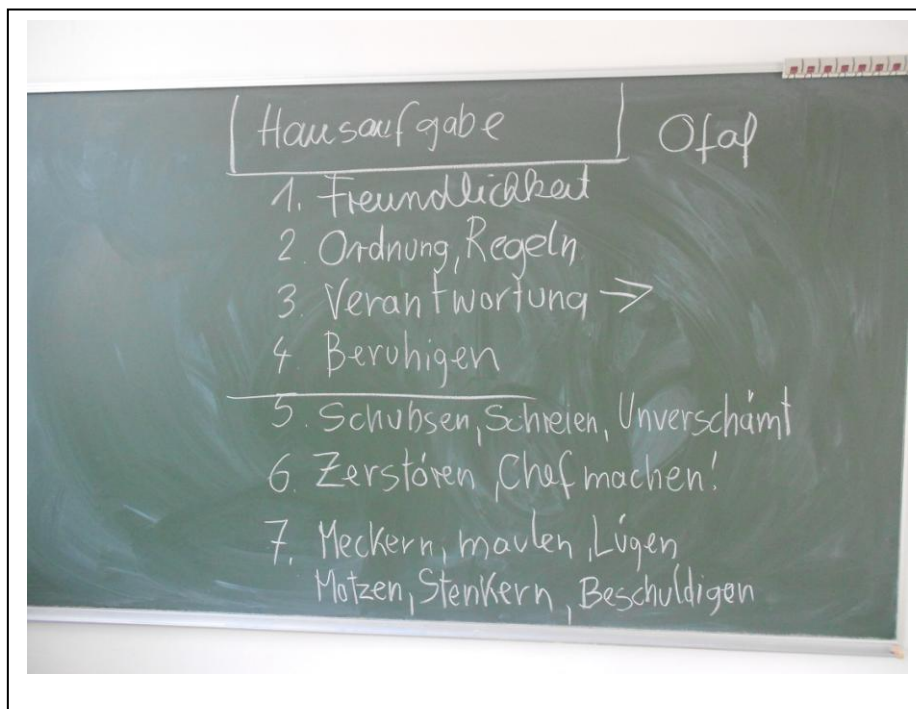 Hausaufgabe Ofal
1. Freundlichkeit
2. Ordnung, Regeln
3. Verantwortung →
4 Beruhigen
5. Schubsen, Schreien, Unverschämt
6. Zerstören, Chef machen!
7. Meckern, maulen, Lügen
Motzen, Stenkern, Beschuldigen